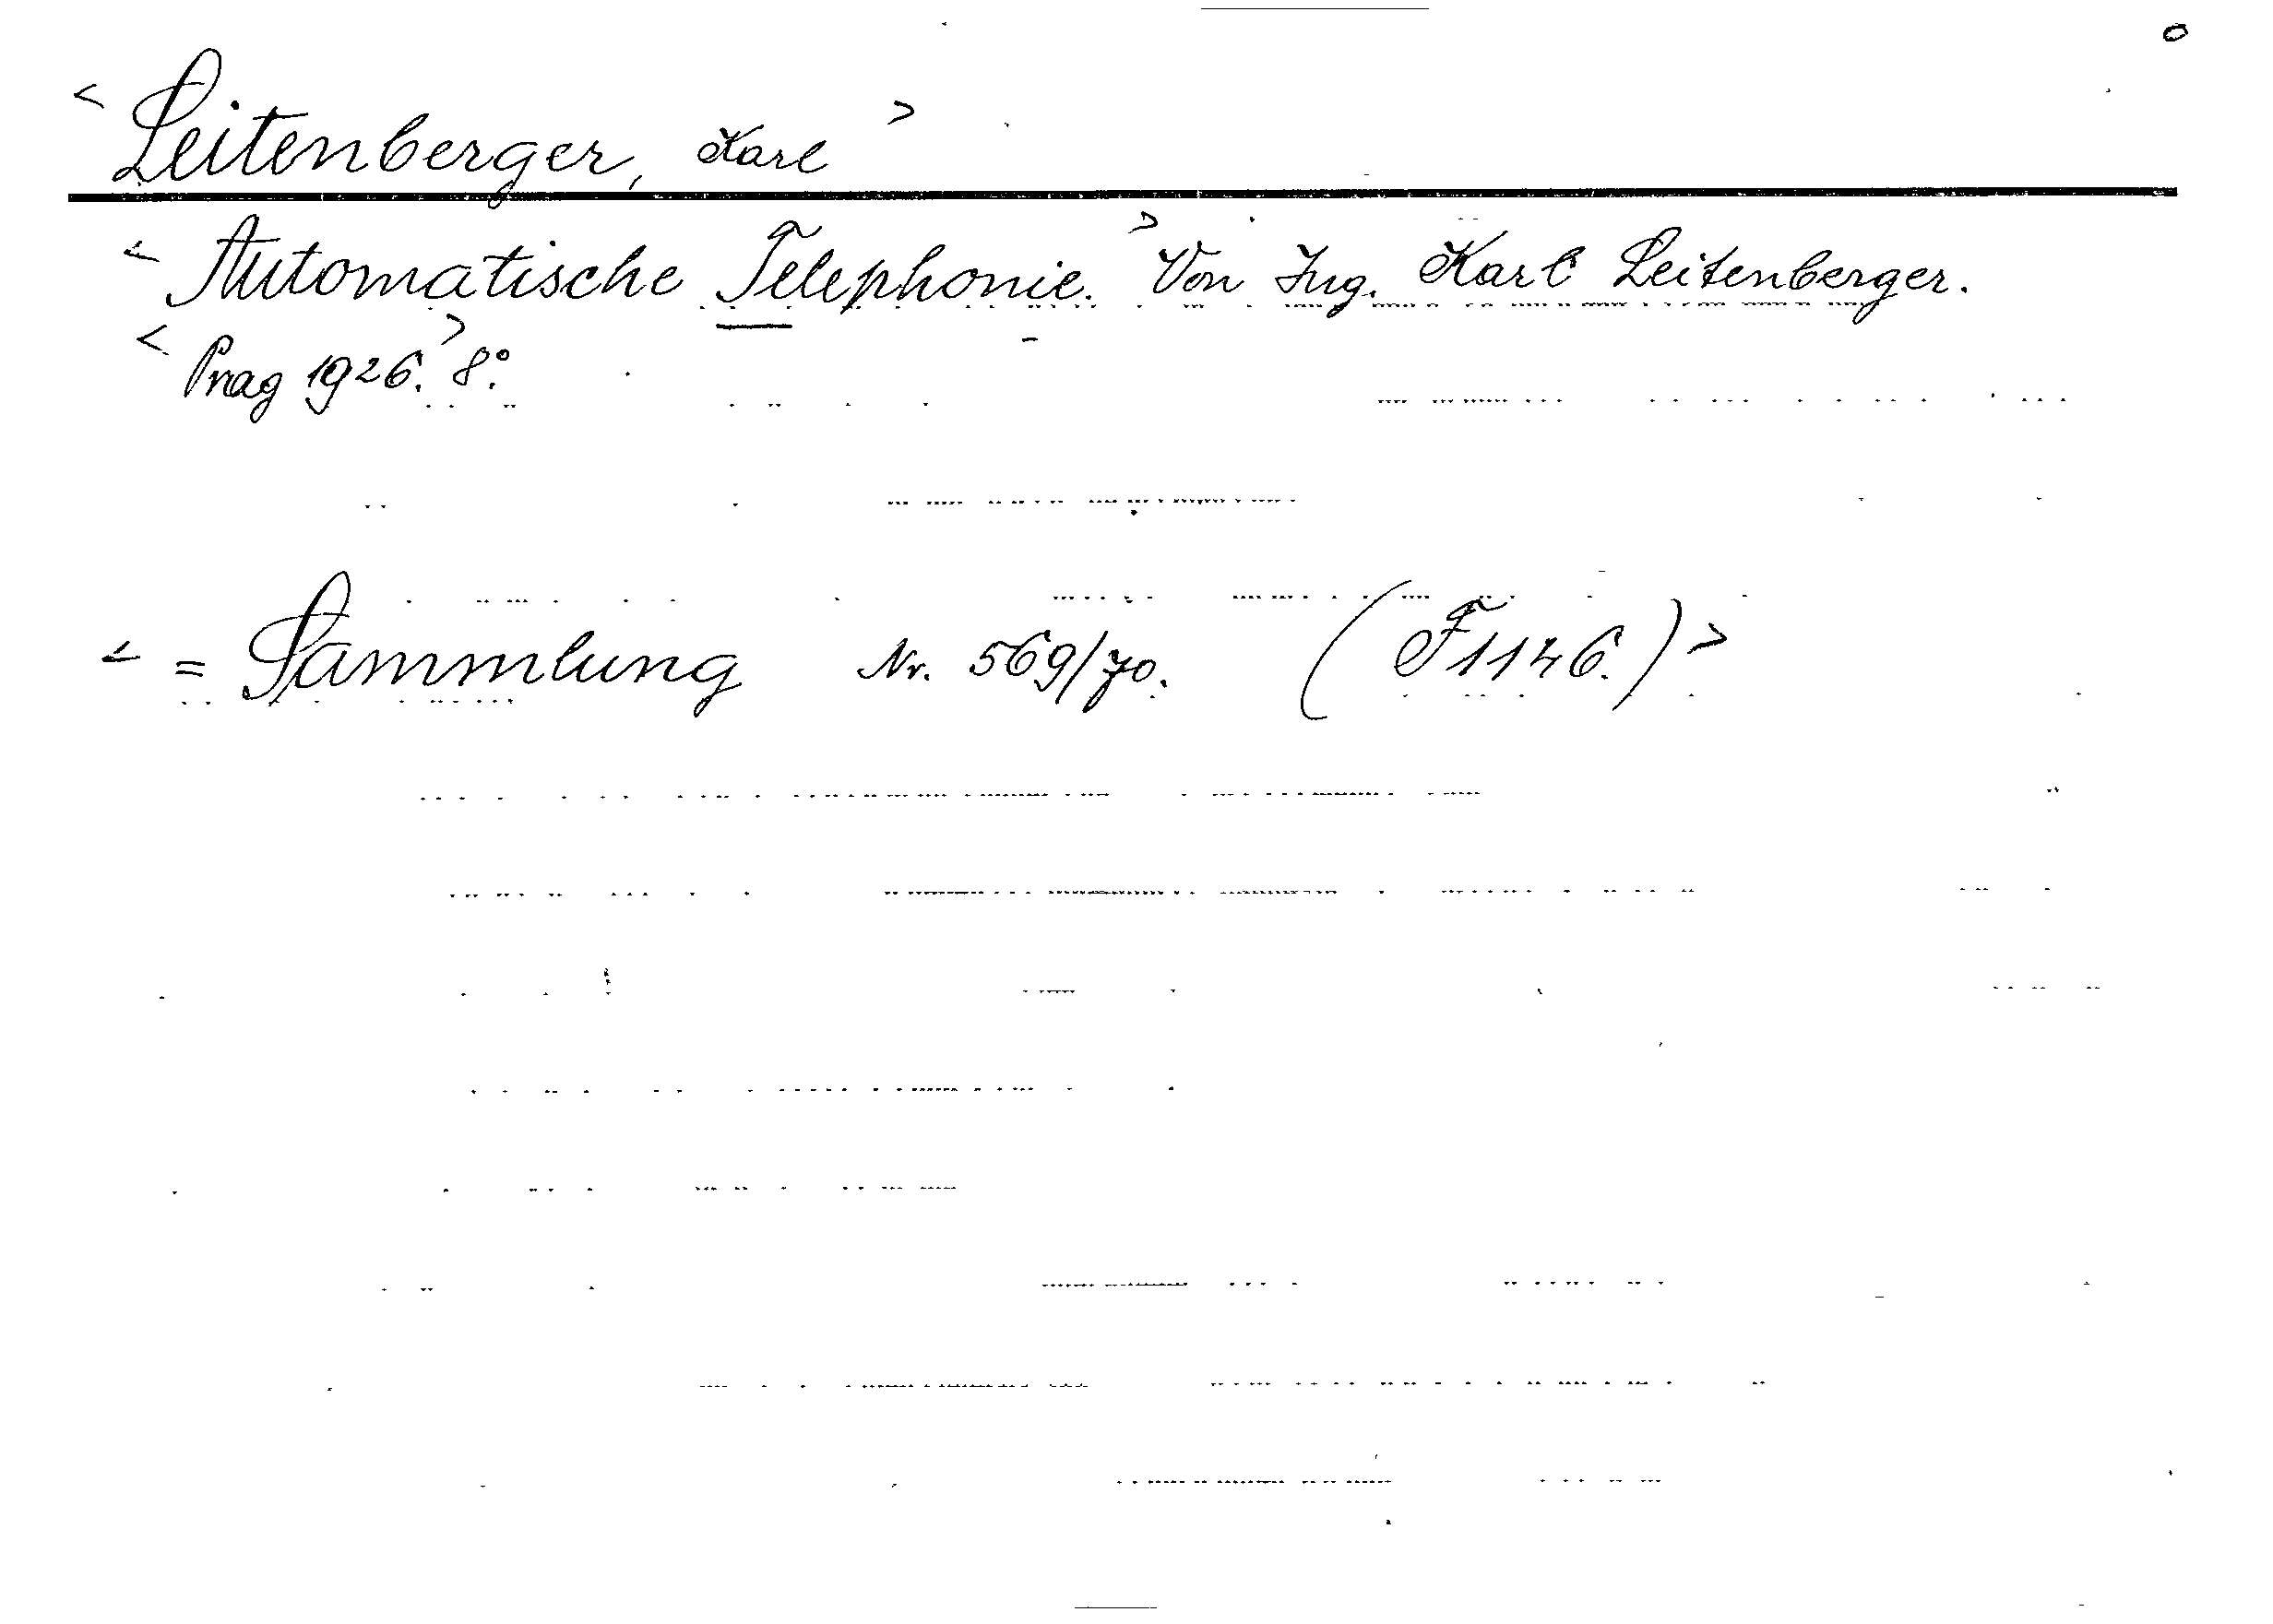 < Leitenberger, Karl >
< Automatische Telephonie. > Von Ing. Karl Leitenberger.
< Prag 1926. > 8°.
< = Sammlung Nr. 569/70. (F 1146.) >